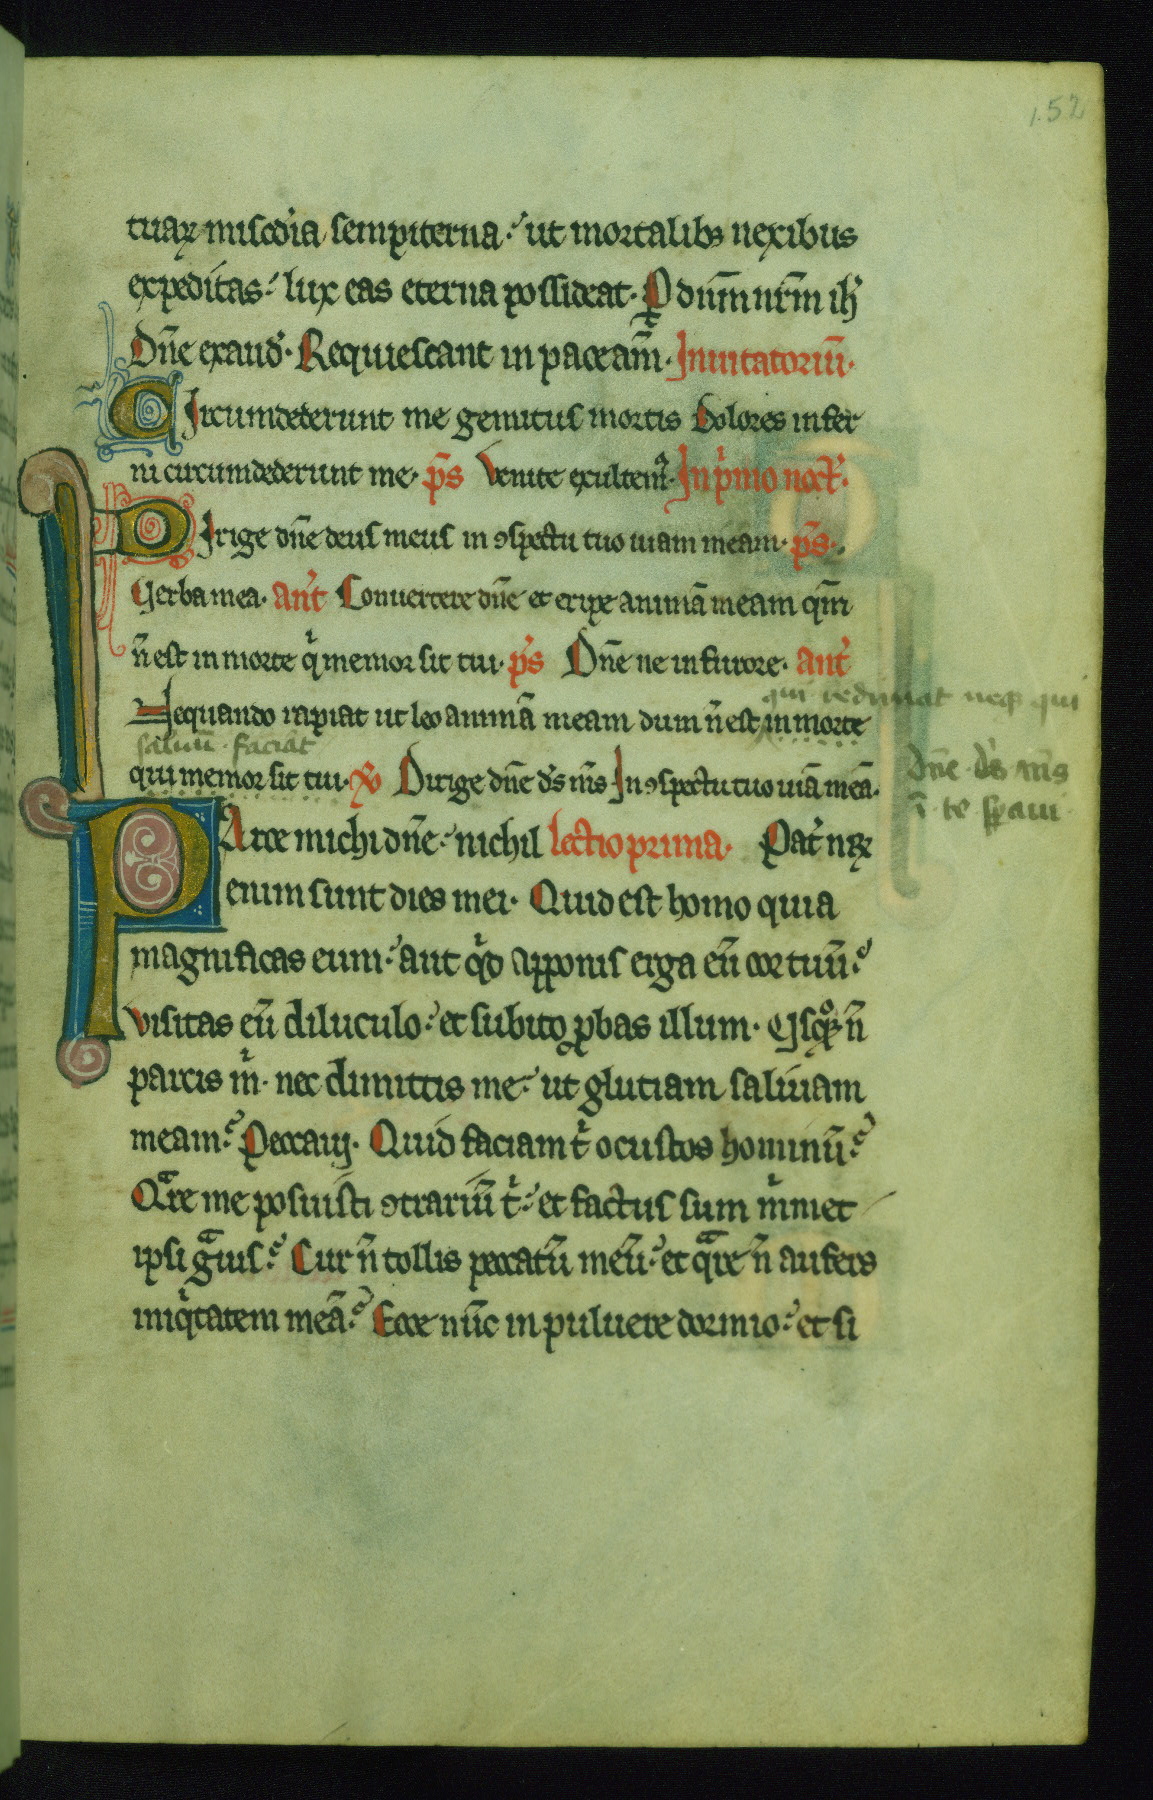 152
tuaꝝ miſcdia ſempiterna ut mortalibꝫ nexibus
expeditas lux eas eterna poſſideat. P dūm nr̄m ih̄
Dn̄e exaud. Requieſcant in pace am̄. Inuitatoriū.
Circumdederunt me gemitus mortis Dolores infer
ni circumdederunt me. p̄s Venite exultem᷒. In pͥmo noct.
Dirige dn̄e deus meus in ꝯſpectu tuo uiam meam. p̄s.
Verba mea. anͭ Conuertere dn̄e et eripe animā meam qm̄
n̄ eſt in morte qͥ memor ſit tui. p̄s Dn̄e ne in furore. anͭ
qui redimat neqꝫ qui
Nequando rapiat ut leo animā meam dum n̄ eſt in morte
saluū faciat
qui memor ſit tui. Dirige dn̄e ds̄ ms̄ In ꝯſpectu tuo uiā meā.
Dn̄e ds̄ ms̄
ī te ꝑaui
Parce michi dn̄e nichil lectio prima. Pat̄ nr̄
enim ſunt dies mei. Quid eſt homo quia
magnificas eum aut qͥd apponis erga eū cor tuū
viſitas eū diluculo et ſubito ꝓbas illum. Uſqꝫqͦ n̄
parcis mͥ. nec dimittis me ut glutiam ſaliuam
meam Peccaui. Quid faciam tͥ o cuſtos hominū
Qͣre me poſuiſti ꝯtrariū tͥ et factus ſum mͥmet
ipſi gͣuis Cur n̄ tollis peccatū meū et qͣre n̄ aufers
iniqͥtatem meā Ecce nūc in puluere dormio et ſi